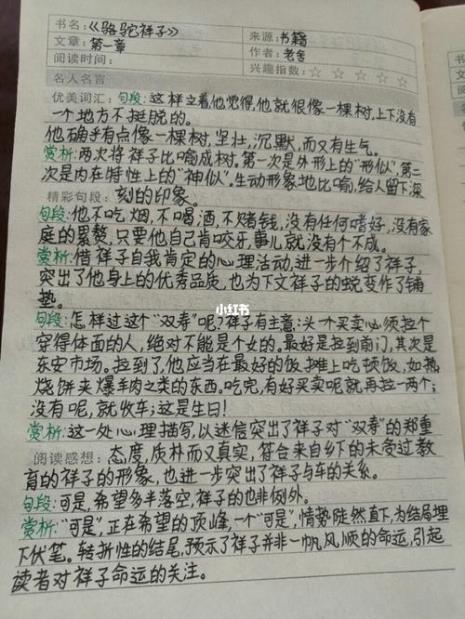 书名：《骆驼祥子》 来源：书籍
文章：第一章 作者：老舍
阅读时间： 兴趣指数：☆ ☆ ☆ ☆ ☆
名人名言
优美词汇：句段：这样立着，他觉得，他就很像一棵树，上下没有
一个地方不挺脱的。
他确乎有点像一棵树，坚壮，沉默，而又有生气。
赏析：两次将祥子比喻成树。第一次是外形上的“形似”，第二
次是内在特性上的“神似”。生动形象地比喻，给人留下深
精彩句段：刻的印象。
句段：他不吃烟，不喝酒，不赌钱，没有任何嗜好，没有家
庭的累赘，只要他自己肯咬牙，事儿就没有个不成。
赏析：借祥子自我肯定的心理活动，进一步介绍了祥子，
突出了他身上的优秀品质，也为下文祥子的蜕变作了铺
垫。
小红书
句段：怎样过这个“双寿”呢？祥子有主意：头一个买卖必须拉个
穿得体面的人，绝对不能是个女的。最好是拉到南门，其次是
东安市场。拉到了，他应当在最好的饭摊上吃顿饭，如热
烧饼夹爆羊肉之类的东西。吃完，有好买卖呢就再拉一两个；
没有呢，就收车；这是生日！
赏析：这一处心理描写，以迷信突出了祥子对“双寿”的郑重
阅读感想：态度，质朴而又真实，符合来自乡下的未受过教
育的祥子的形象，也进一步突出了祥子与车的关系。
句段：可是，希望多半落空，祥子的也非例外。
赏析：“可是”，正在希望的顶峰，一个“可是”，情势陡然直下，为结局埋
下伏笔。转折性的结尾，预示了祥子并非一帆风顺的命运，引起
读者对祥子命运的关注。